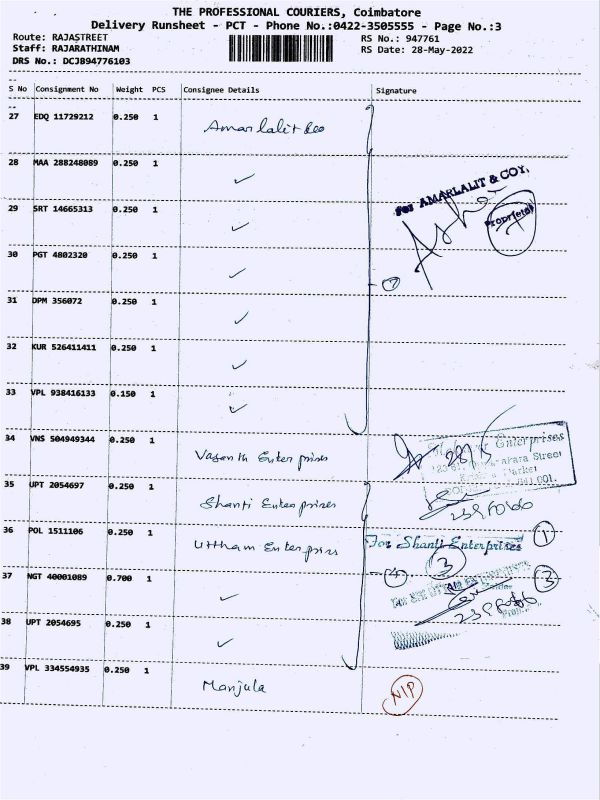 THE PROFESSIONAL COURIERS, Coimbatore
Delivery Runsheet - PCT - Phone No.:0422-3505555 - Page No.:3
Route: RAJASTREET
RS No.: 947761
Staff: RAJARATHINAM
RS Date: 28-May-2022
DRS No.: DCJB94776103
S No Consignment No Weight PCS Consignee Details Signature
27 EDQ 11729212 0.250 1 Amarlalit
28 MAA 288248089 0.250 1
For AMARLALIT & COY.
Proprietor
29 SRT 14665313 0.250 1
30 PGT 4802320 0.250 1
7
31 DPM 356072 0.250 1
32 KUR 526411411 0.250 1
33 VPL 938416133 0.150 1
34 VNS 504949344 0.250 1 Vasanth Enterprises
Enterprises
Street
35 UPT 2054697 0.250 1 Shanti Enterprises
36 POL 1511106 0.250 1 Uttham Enterprises
For Shanti Enterprises 1
3
37 NGT 40001089 0.700 1
4
38 UPT 2054695 0.250 1
39 VPL 334554935 0.250 1 Manjula
N/P